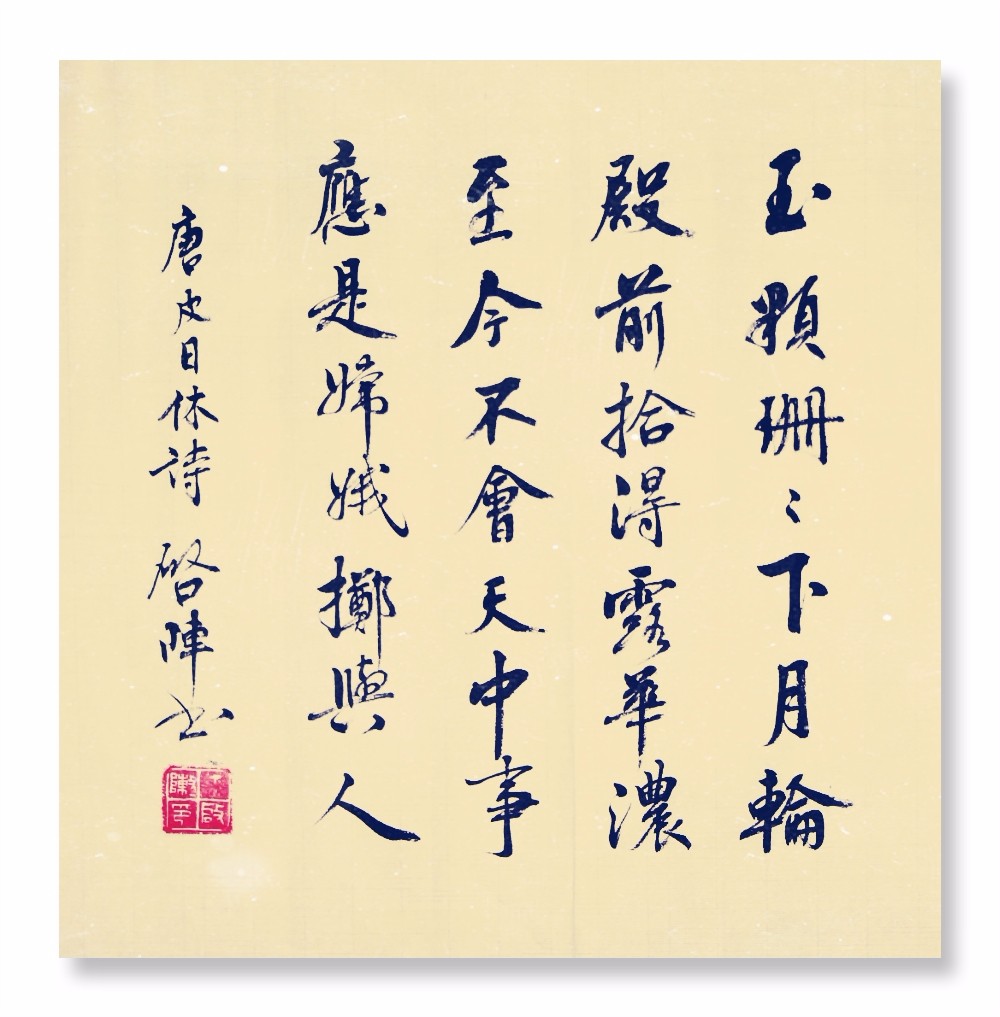 玉顆珊〻下月輪
殿前拾得露華濃
至今不會天中事
應是嫦娥擲與人
唐皮日休詩 啓陣书